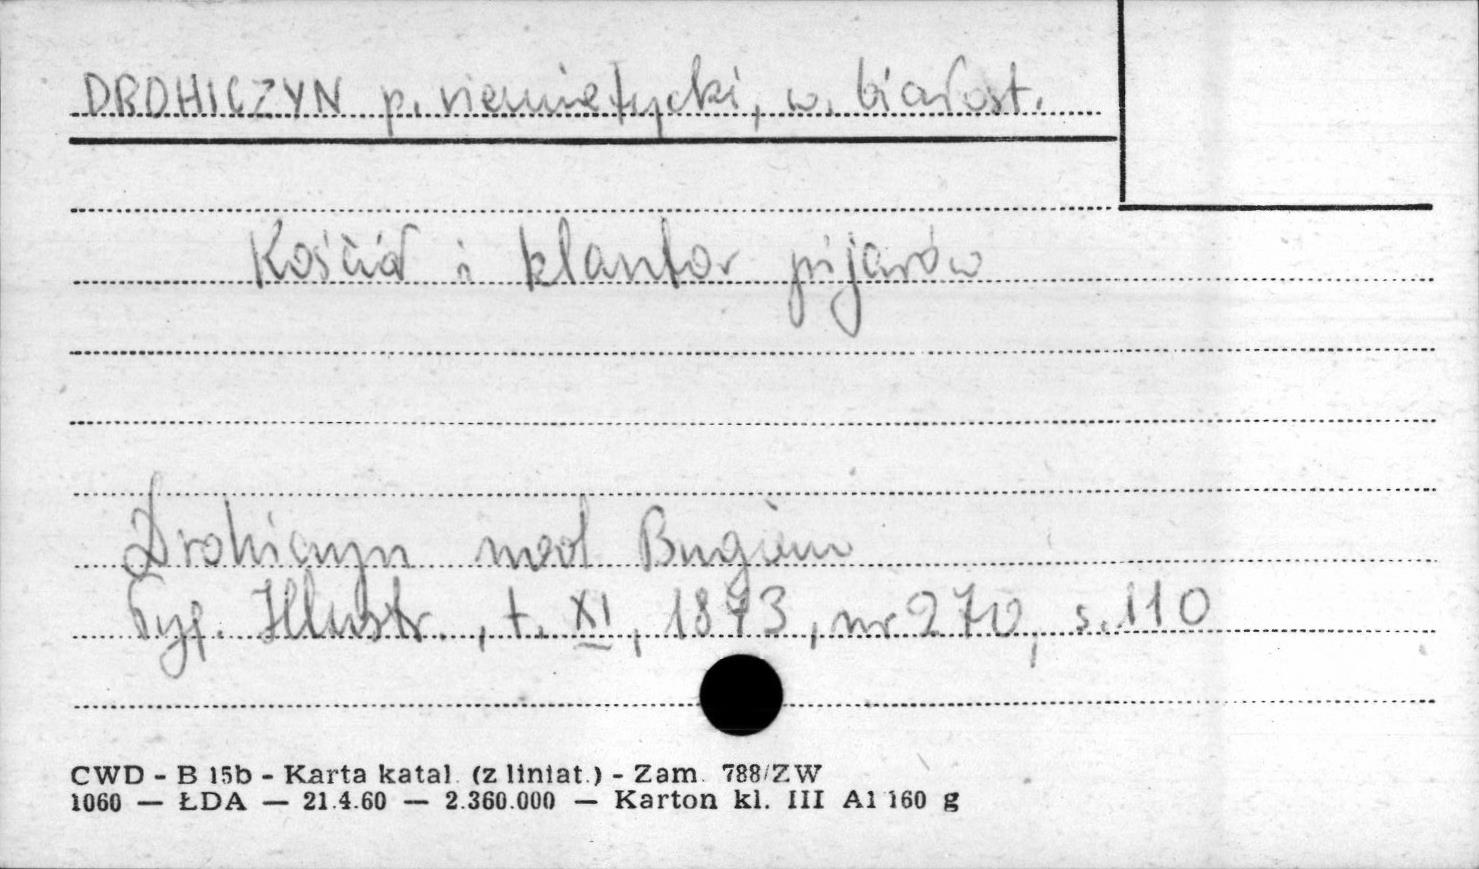 DROHICZYN p. siemiatycki, w. białost.
Kościół i klasztor pijarów
Drohiczyn nad Bugiem
Tyg. Illustr., t. XI, 1873, nr 270, s. 110
CWD - B 15b - Karta katal. (z liniat.) - Zam. 788/ZW
1060 — ŁDA — 21.4.60 — 2.360.000 — Karton kl. III A1 160 g